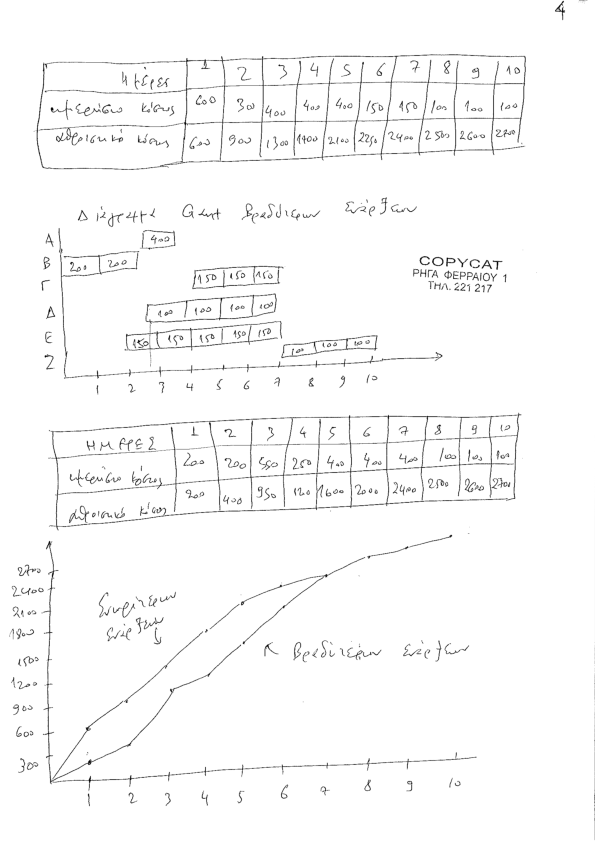 4
Ημέρες 1 2 3 4 5 6 7 8 9 10
ημερήσιο κόστος 600 300 400 400 400 150 150 100 100 100
αθροιστικό κόστος 600 900 1300 1700 2100 2250 2400 2500 2600 2700
Διάγραμμα Gant Βραδύτερων Ενάρξεων
Α 400
Β 200 200
Γ 150 150 150
Δ 100 100 100 100
Ε 150 150 150 150 150
Ζ 100 100 100
1 2 3 4 5 6 7 8 9 10
COPYCAT
ΡΗΓΑ ΦΕΡΡΑΙΟΥ 1
ΤΗΛ. 221 217
ΗΜΕΡΕΣ 1 2 3 4 5 6 7 8 9 10
ημερήσιο κόστος 200 200 550 250 400 400 400 100 100 100
αθροιστικό κόστος 200 400 950 120 1600 2000 2400 2500 2600 2700
2700
2400
2100
1800
1500
1200
900
600
300
ενάρξεων
Βραδύτερων ενάρξεων
1 2 3 4 5 6 7 8 9 10